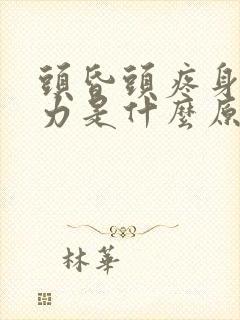 頭昏頭疼身
力是什麼原
林華